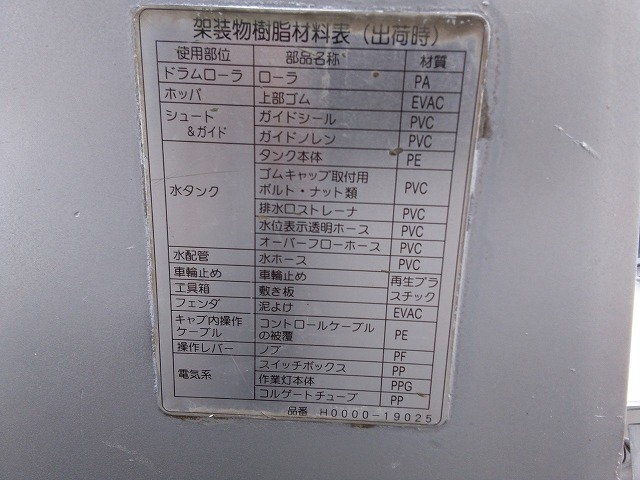 架装物樹脂材料表（出荷時）
使用部位 部品名称 材質
ドラムローラ ローラ PA
ホッパ 上部ゴム EVAC
シュート
&ガイド
ガイドシール PVC
ガイドノレン PVC
水タンク
タンク本体 PE
ゴムキャップ取付用
ボルト・ナット類 PVC
排水口ストレーナ PVC
水位表示透明ホース PVC
オーバーフローホース PVC
水配管 水ホース PVC
車輪止め 車輪止め 再生プラ
スチック
工具箱 敷き板
フェンダ 泥よけ EVAC
キャブ内操作
ケーブル
コントロールケーブル
の被覆 PE
操作レバー ノブ PF
電気系
スイッチボックス PP
作業灯本体 PPG
コルゲートチューブ PP
品番 H0000-19025